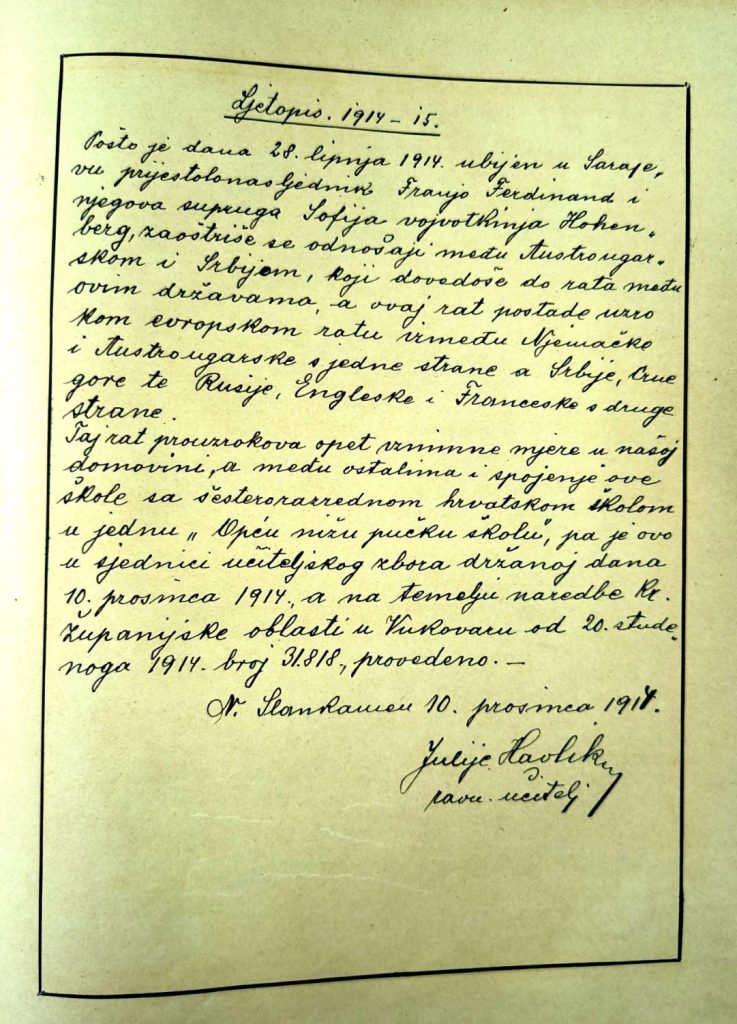 Ljetopis. 1914 – 15.
Pošto je dana 28. lipnja 1914. ubijen u Saraje„
vu prijestolonasljednik Franjo Ferdinand i
njegova supruga Sofija vojvotkinja Hohen„
berg, zaoštriše se odnošaji među Austrougar„
skom i Srbijem, koji dovedoše do rata među
ovim državama, a ovaj rat postade uzro
kom evropskom ratu između Njemačke
i Austrougarske s jedne strane a Srbije, Crne
gore te Rusije, Engleske i Franceske s druge
strane.
Taj rat prouzrokova opet iznimne mjere u našoj
domovini, a među ostalima i spojenje ove
škole sa šesterorazrednom hrvatskom školom
u jednu „Opću nižu pučku školu", pa je ovo
u sjednici učiteljskog zbora držanoj dana
10. prosinca 1914., a na temelju naredbe kr.
županijske oblasti u Vukovaru od 20. stude„
noga 1914. broj 31.818., provedeno. –
N. Slankamen 10. prosinca 1914.
Julije Havlik
ravn. učitelj